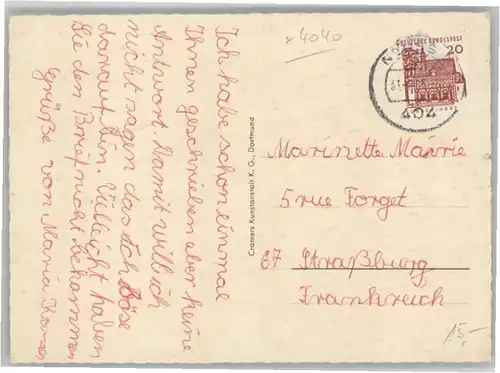 Ich habe schon einmal
Ihnen geschrieben aber keine
Antwort. Damit will ich
nicht sagen das Ich Böse
darauf bin. Vielleicht haben
Sie den Brief nicht bekommen
Grüße von Maria
* 4040
DEUTSCHE BUNDESPOST
20
404
Cramers Kunstanstalt K. G., Dortmund
Marinette Maurie
5 rue Forget
67 Straßburg
Frankreich
15,-